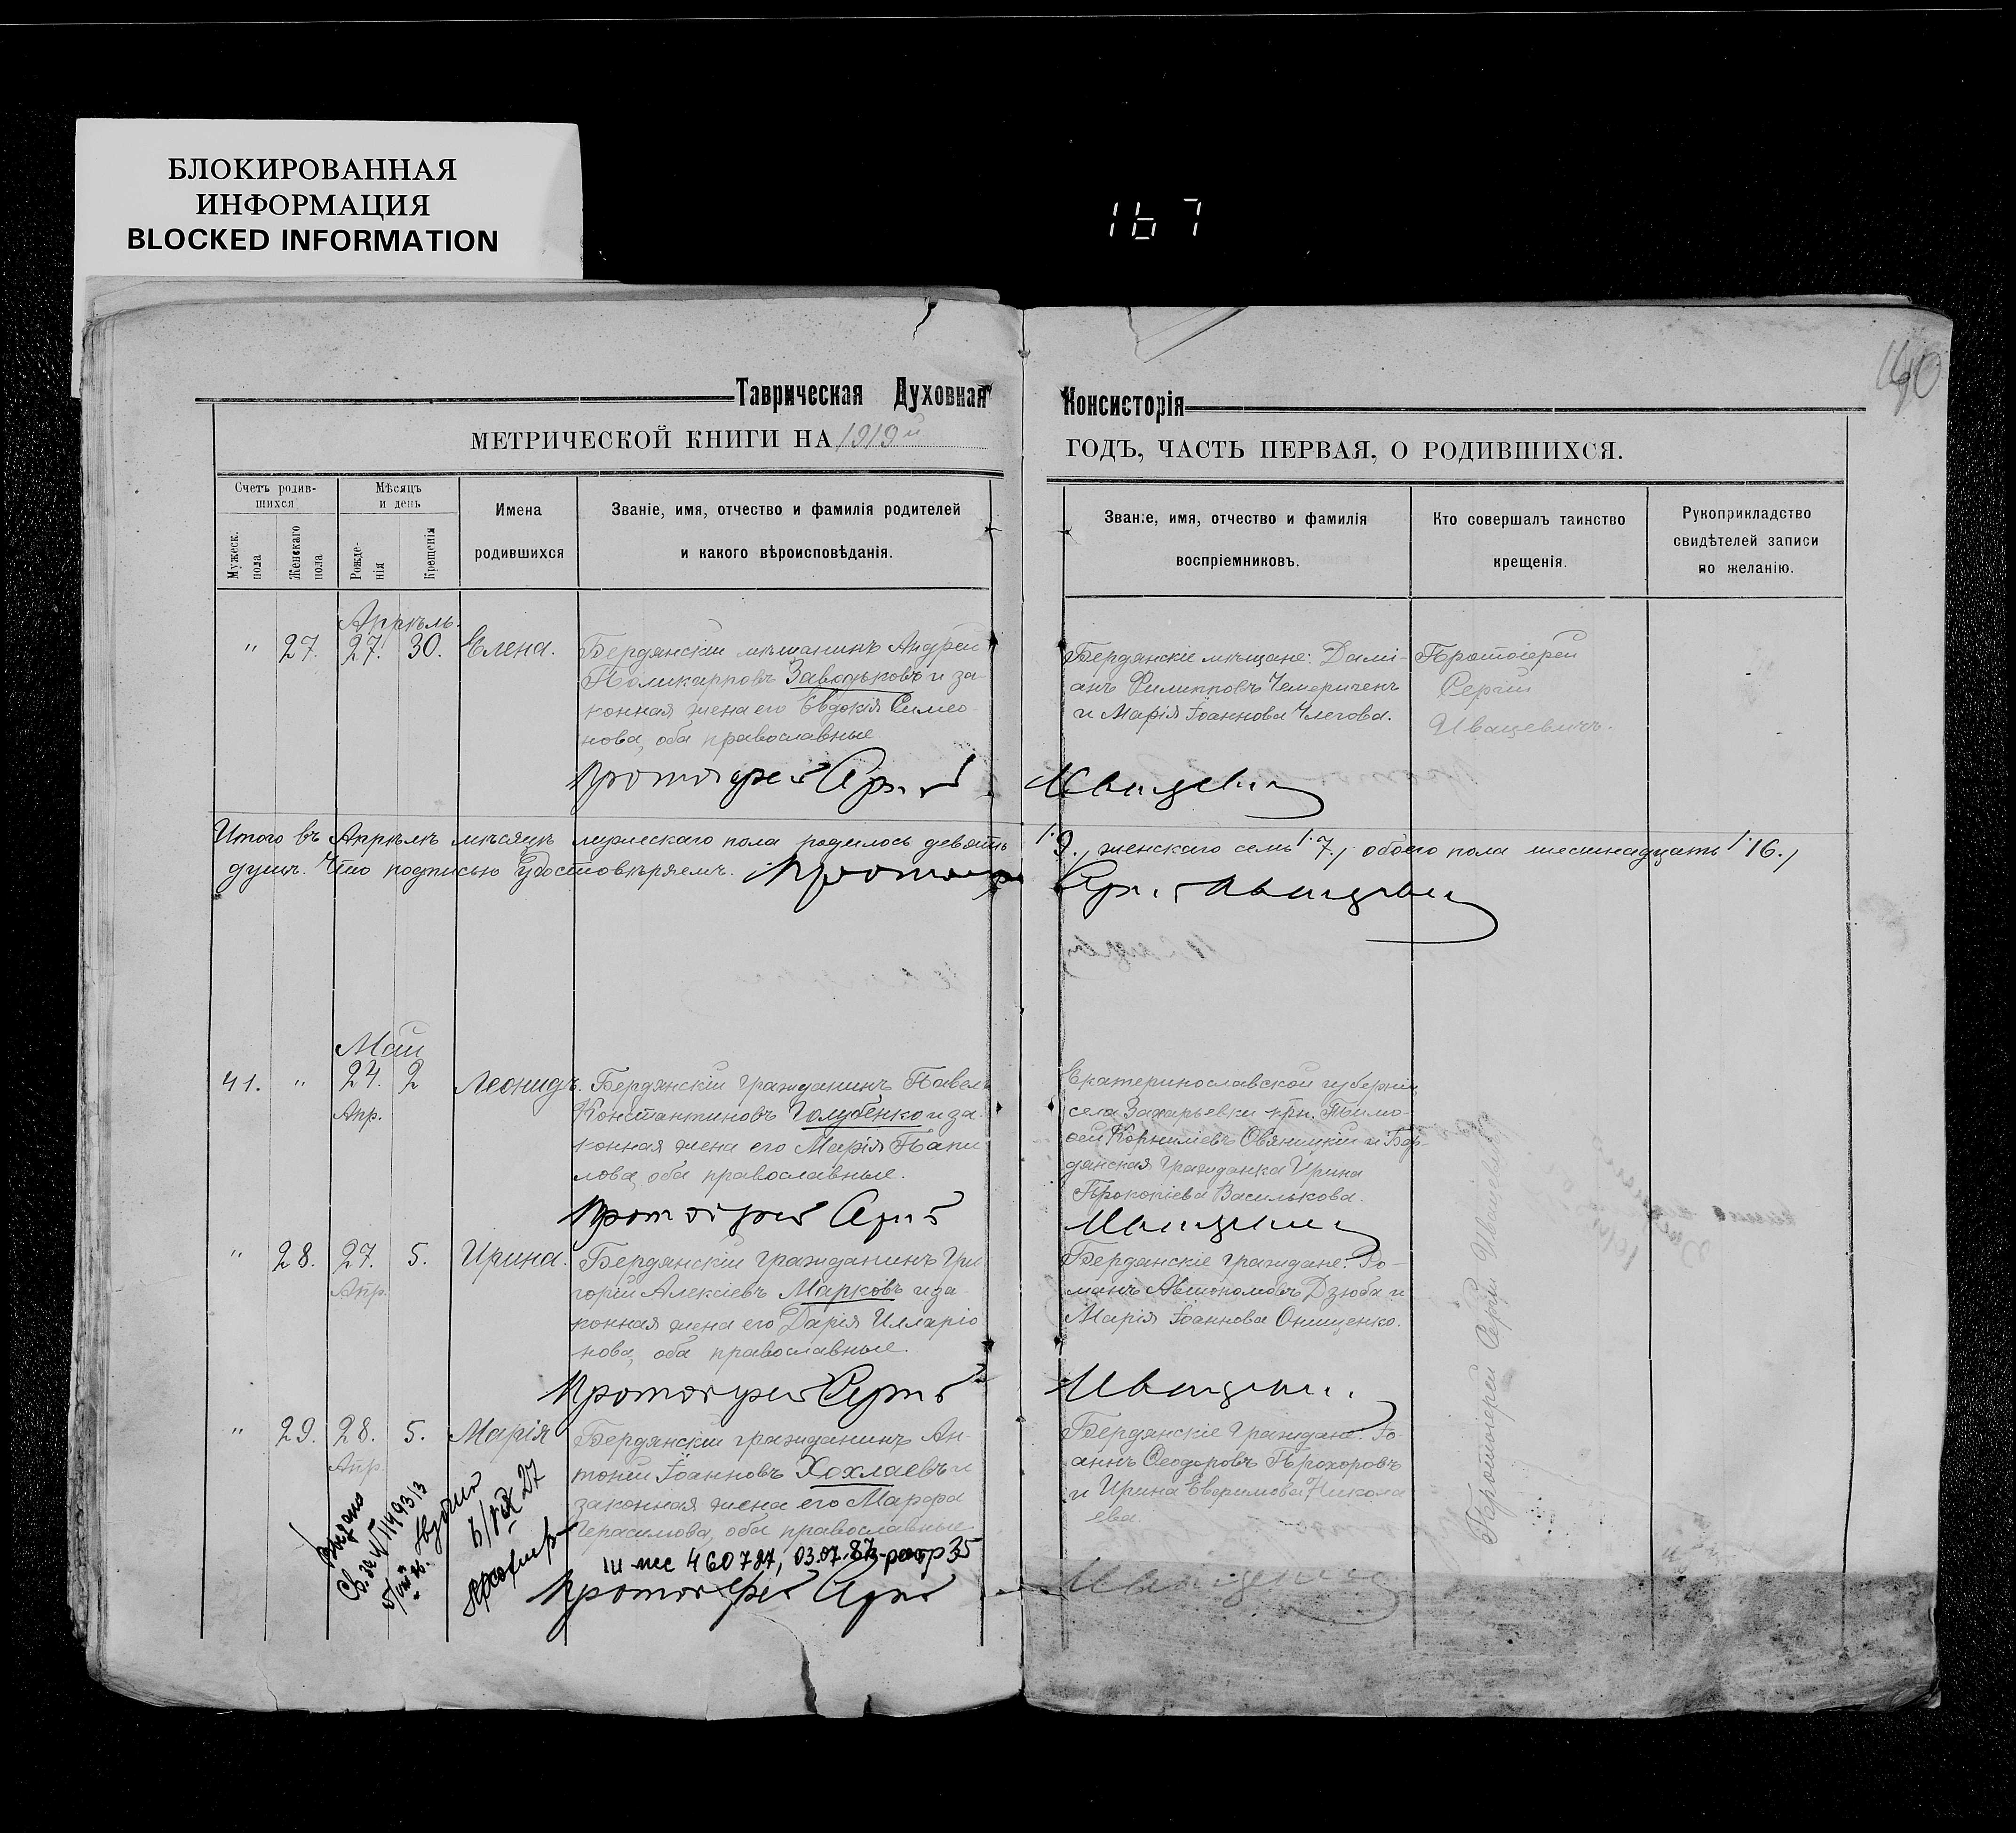 БЛОКИРОВАННАЯ
ИНФОРМАЦИЯ
BLOCKED INFORMATION
167
Таврическая Духовная Консисторія
МЕТРИЧЕСКОЙ КНИГИ НА 1919й ГОДЪ, ЧАСТЬ ПЕРВАЯ, О РОДИВШИХСЯ.
Счетъ родив-
шихся
Мужеск. пола
Женскаго пола
Мѣсяцъ
и день
Рожде-
нія
Крещенія
Имена
родившихся
Званіе, имя, отчество и фамилія родителей
и какого вѣроисповѣданія.
Званіе, имя, отчество и фамилія
воспріемниковъ.
Кто совершалъ таинство
крещенія.
Рукоприкладство
свидѣтелей записи
по желанію.
Апрѣль.
" 27. 27. 30. Елена.
Бердянскій мѣщанинъ Андрей
Поликарповъ Заводьковъ и за-
конная жена его Евдокія Симео-
нова, оба православные
Бердянскіе мѣщане: Дамі-
анъ Филипповъ Чемериченъ
и Марія Іоаннова
Протоіерей
Сергій
Ивацевичъ.
Протоіерей Сергій Ивацевичъ
Итого въ Апрѣлѣ мѣсяцѣ мужескаго пола родилось девять /9./, женскаго семь /7./, обоего пола шестнадцать /16./
душъ. Что подписью удостовѣряемъ. Протоіерей Сергій Ивацевичъ
Май
41. " 24. 2 Леонидъ.
Апр.
Бердянскій гражданинъ Павелъ
Константиновъ Голубенко и за-
конная жена его Марія
оба православные.
Екатеринославской губерніи
села Захарьевки крн. Тимо-
фей Корниліевъ и Бер-
дянская гражданка Ирина
Прокопіева Василькова.
Протоіерей Сергій Ивацевичъ
" 28. 27. 5. Ирина.
Апр.
Бердянскій гражданинъ Гри
горій Алексіевъ Марковъ и за-
конная жена его Дарія Илларіо
нова, оба православные.
Бердянскіе граждане: Ро-
манъ Автономовъ Дзюба и
Марія Іоаннова Онищенко.
Протоіерей Сергій Ивацевичъ
" 29. 28. 5. Марія
Апр.
Бердянскій гражданинъ Ан-
тоній Іоанновъ Хохлаевъ и
законная жена его Марфа
Герасимова, оба православные
Бердянскіе граждане: Іо-
аннъ Феодоровъ Прохоровъ
и Ирина Евфимова Никола
ева.
Протоіерей Сергій Ивацевичъ
Протоіерей Сергій Ивацевичъ